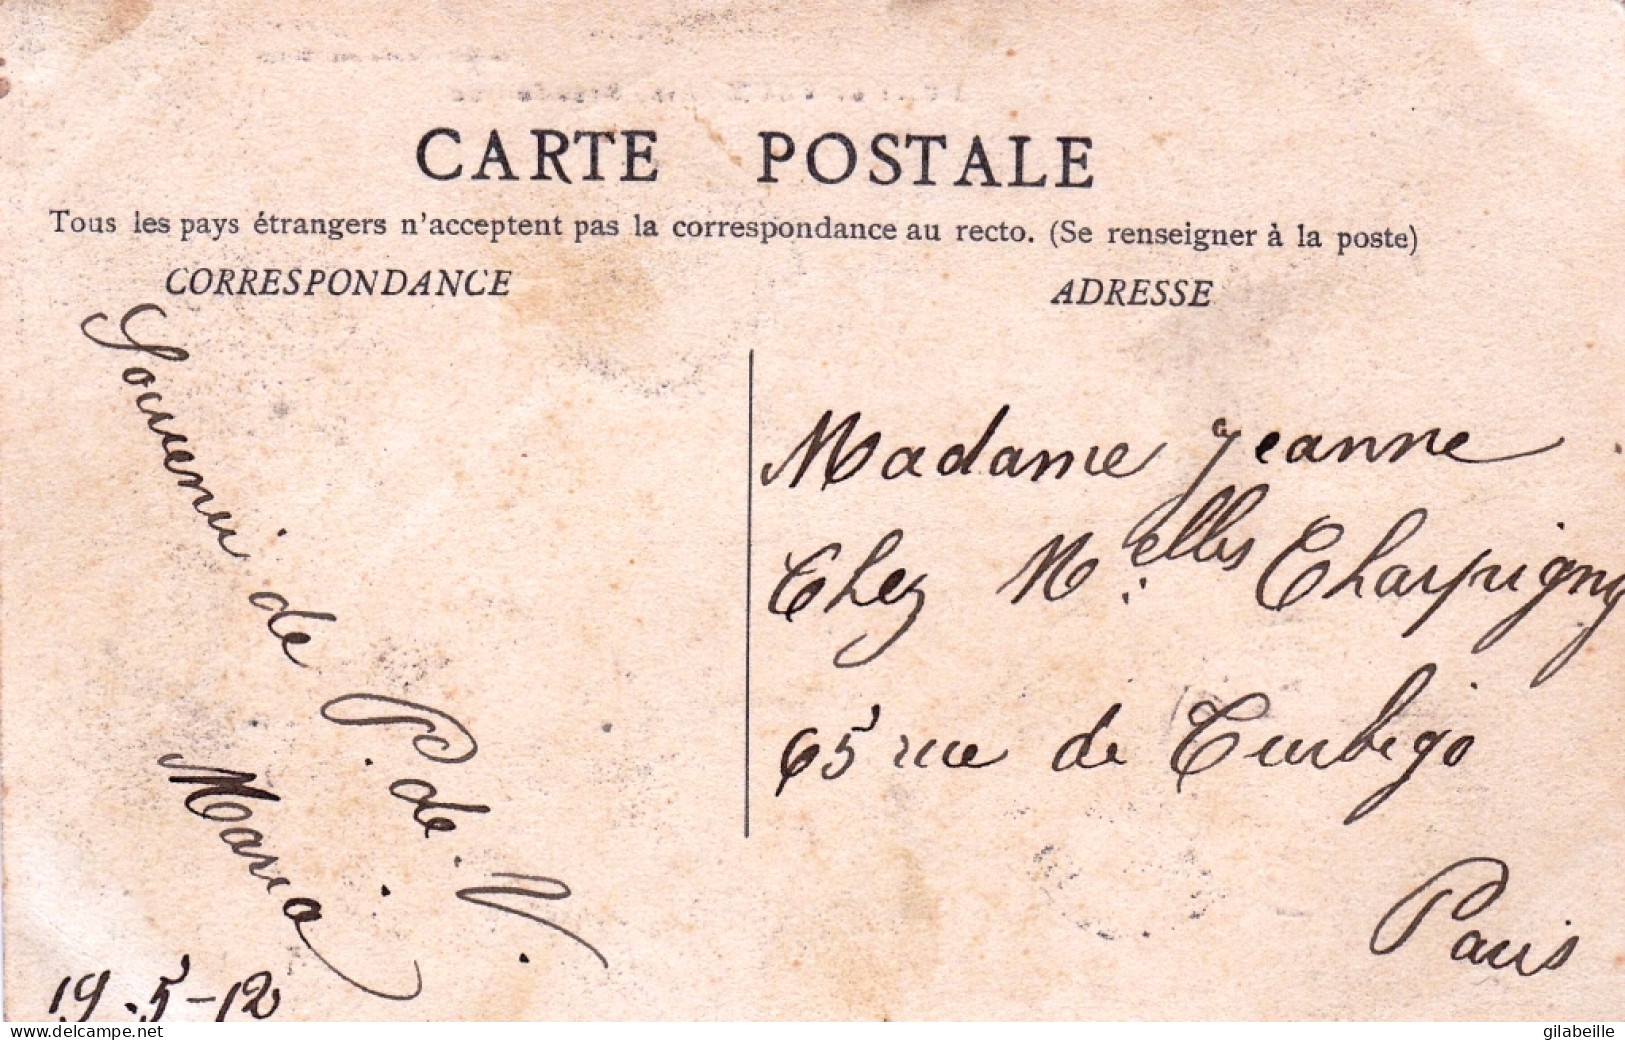 CARTE POSTALE
Tous les pays étrangers n'acceptent pas la correspondance au recto. (Se renseigner à la poste)
CORRESPONDANCE
ADRESSE
Souvenir de P. de V.
Maria
19-5-12
Madame Jeanne
Chez M.elles Charpigny
65 rue de Turbigo
Paris
www.delcampe.net
gilabeille